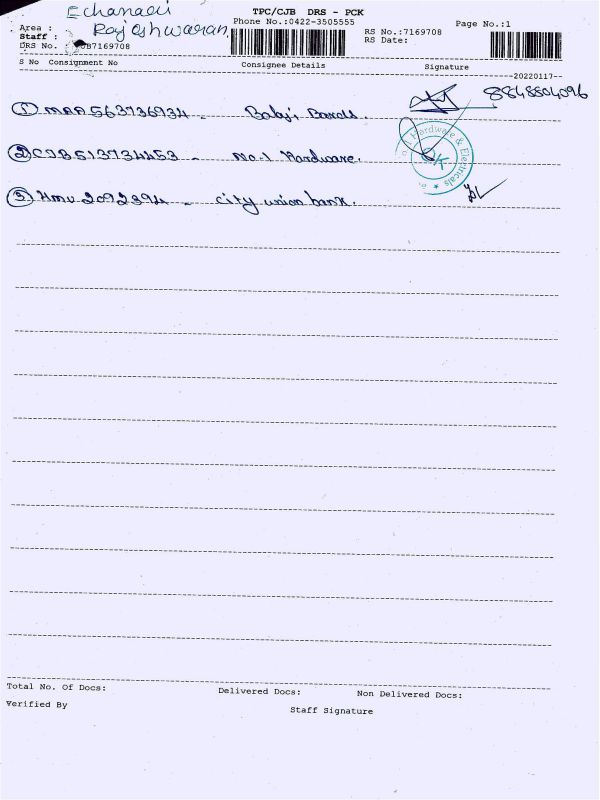 TPC/CJB DRS - PCK
Echanari
Phone No.:0422-3505555
Page No.:1
Area :
Rajeshwaran
RS No.:7169708
Staff :
RS Date:
DRS No. B7169708
S No Consignment No Consignee Details Signature
20220117
① MAA563736934 - Balaji
8848804096
② CJB513734453 - No.1 Hardware.
Hardware & Electricals
③ Hmv 2092394 - city union bank.
Total No. Of Docs: Delivered Docs: Non Delivered Docs:
Verified By Staff Signature